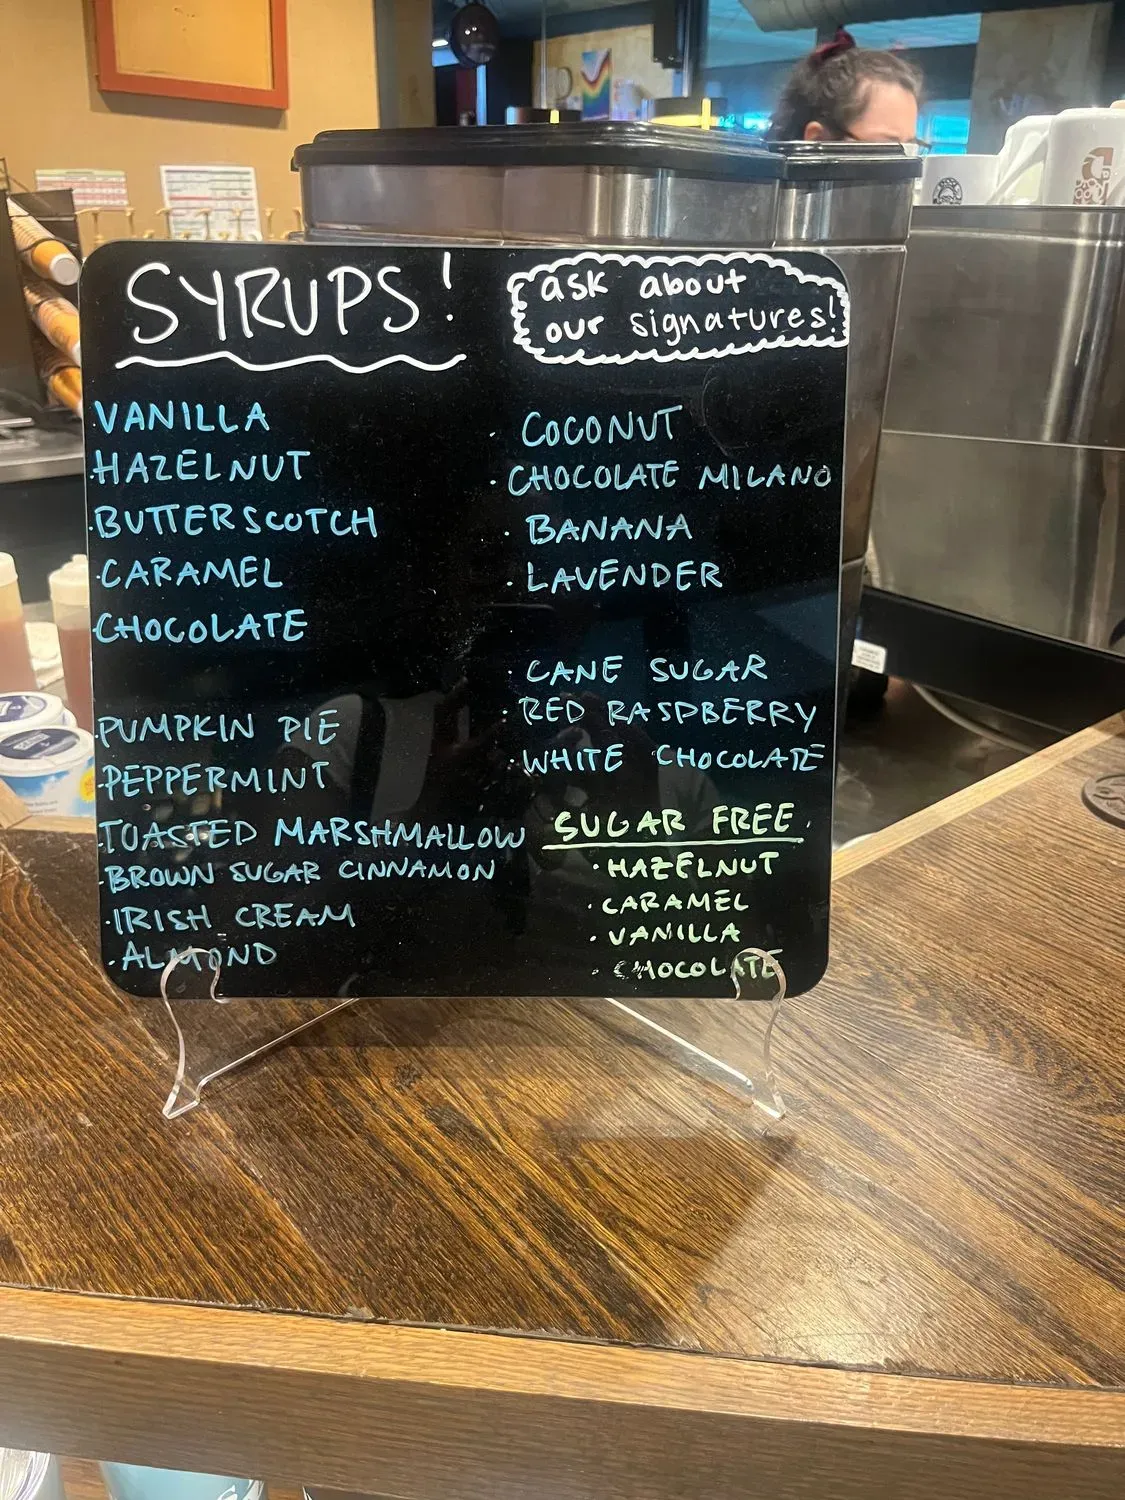 SYRUPS!
ask about
our signatures!
·VANILLA
·HAZELNUT
·BUTTERSCOTCH
·CARAMEL
·CHOCOLATE
·PUMPKIN PIE
·PEPPERMINT
·TOASTED MARSHMALLOW
·BROWN SUGAR CINNAMON
·IRISH CREAM
·ALMOND
· COCONUT
· CHOCOLATE MILANO
· BANANA
· LAVENDER
· CANE SUGAR
· RED RASPBERRY
· WHITE CHOCOLATE
SUGAR FREE
· HAZELNUT
· CARAMEL
· VANILLA
· CHOCOLATE